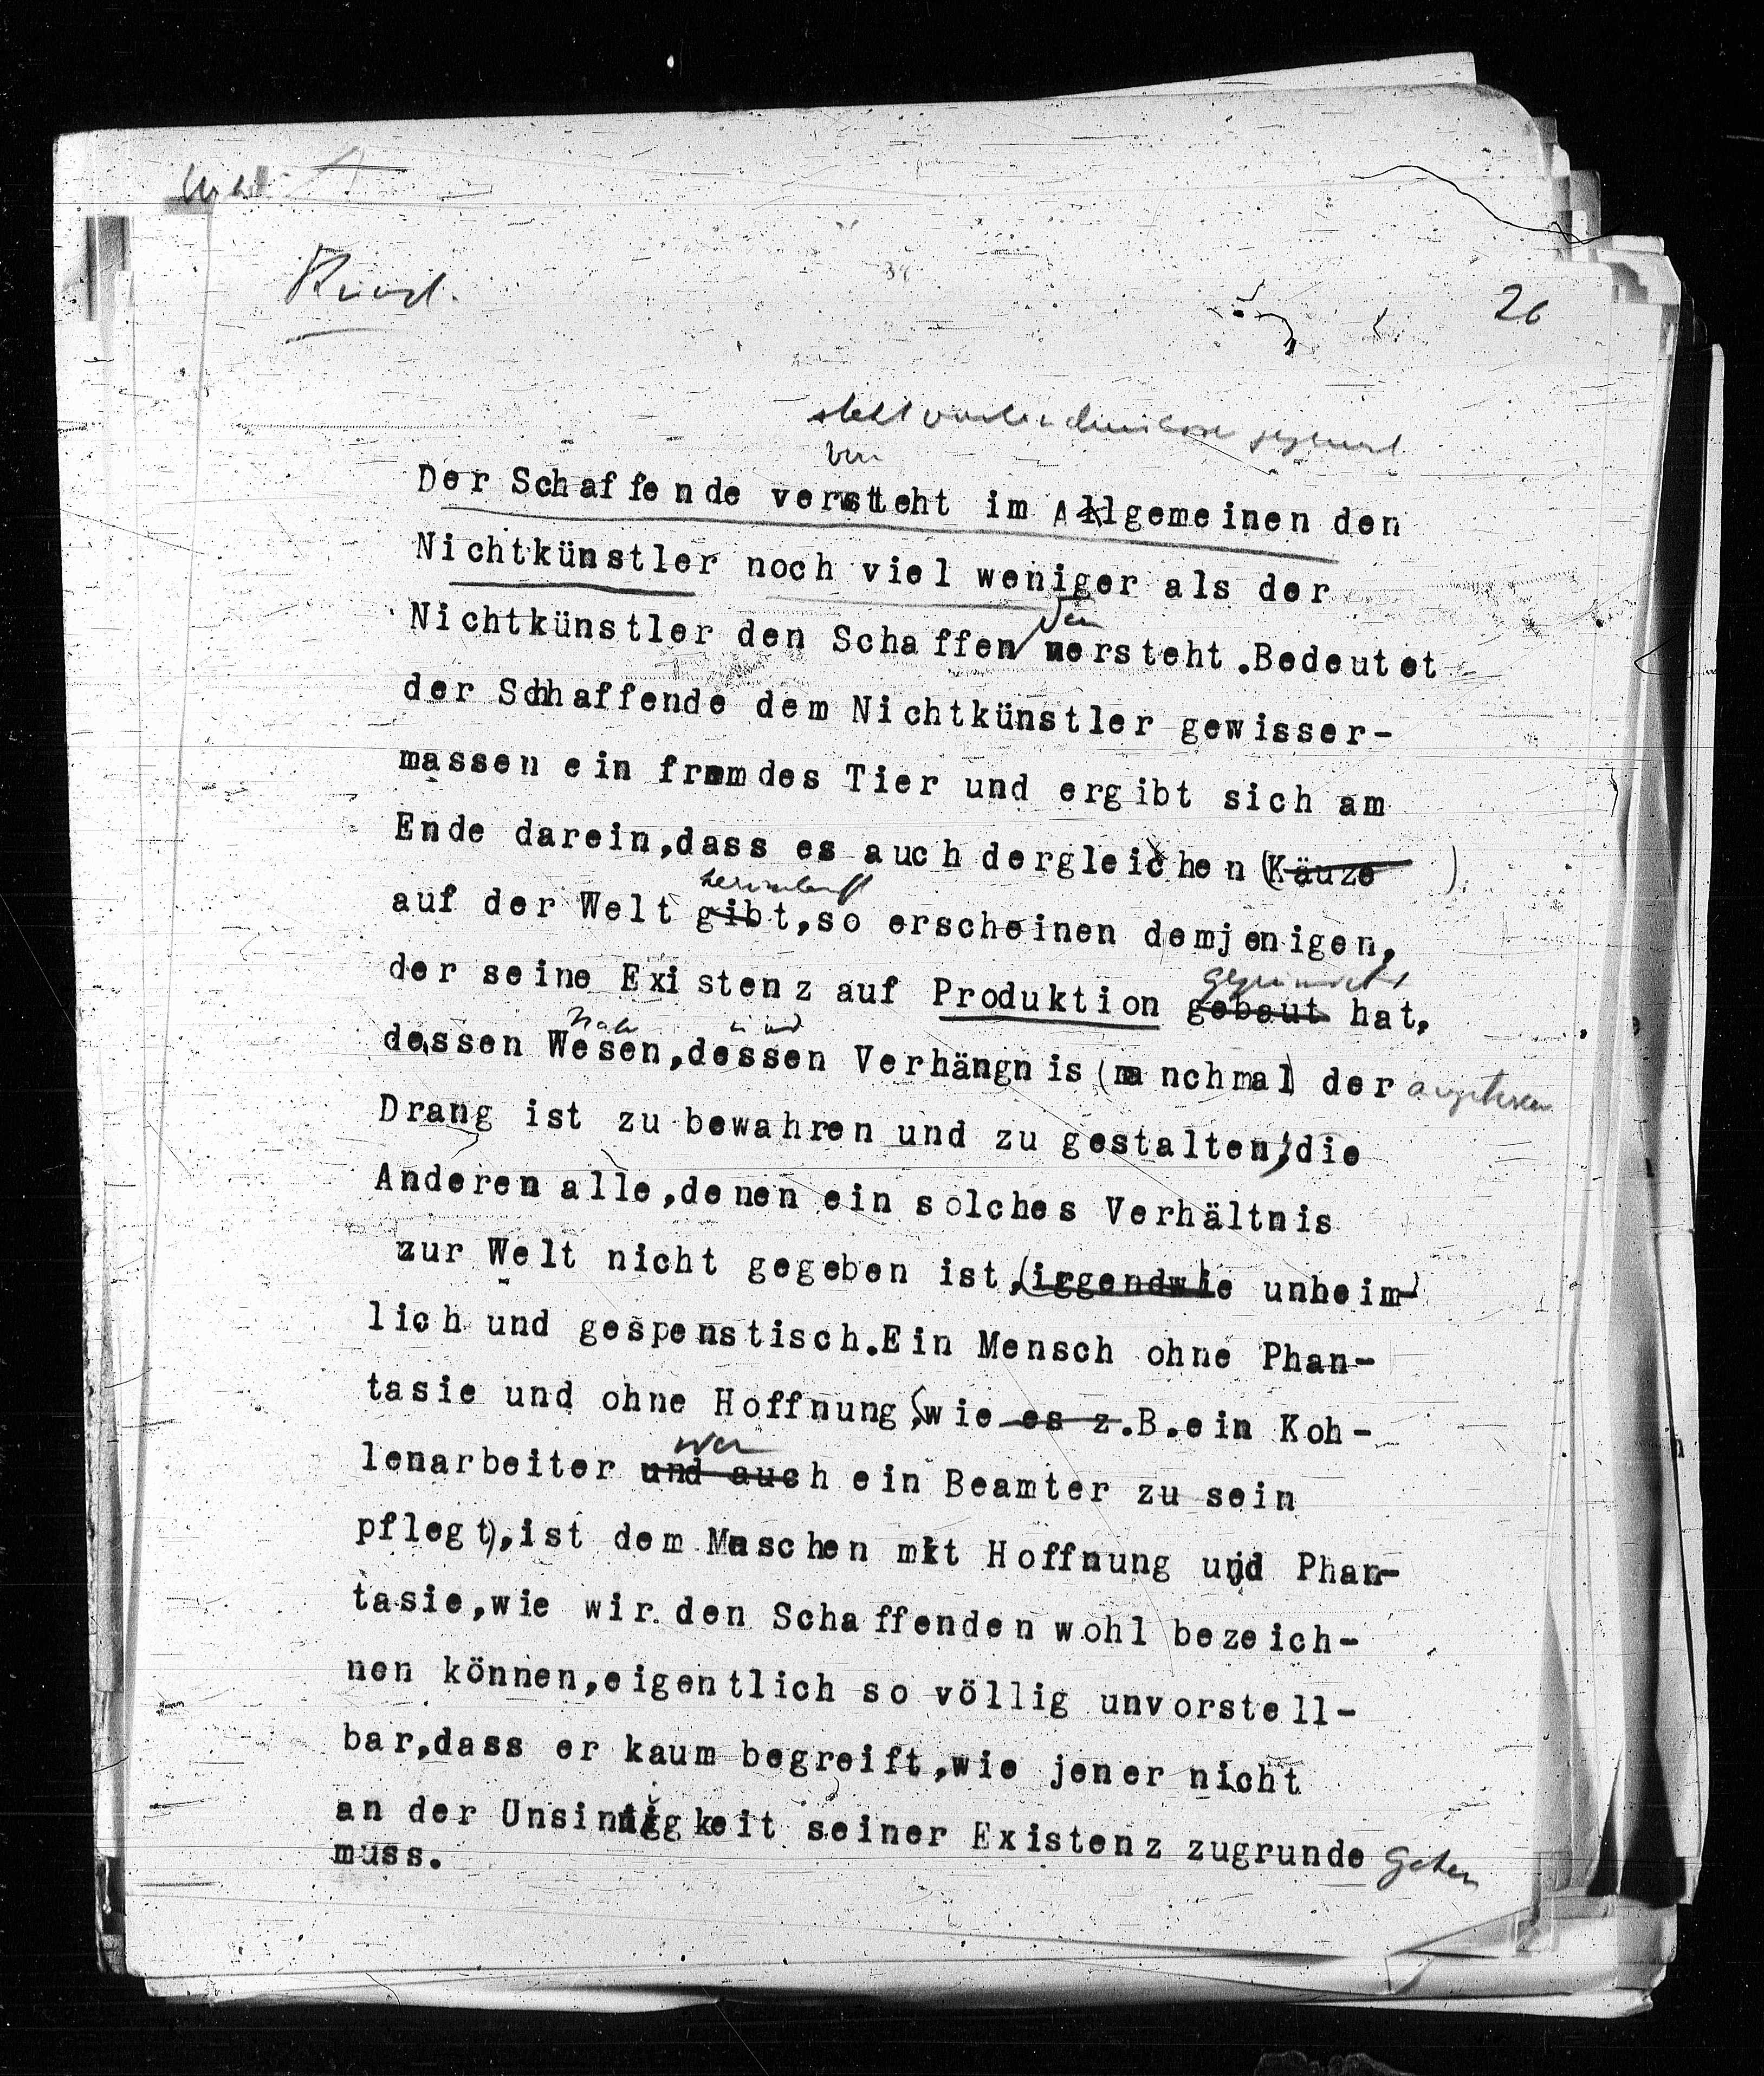 26
Der Schaffende versteht im Allgemeinen den
Nichtkünstler noch viel weniger als der
den
Nichtkünstler den Schaffen versteht.Bedeutet
der Schaffende dem Nichtkünstler gewisser-
massen ein fremdes Tier und ergibt sich am
Ende darein,dass es auch dergleichen (Käuze )
herumläuft
auf der Welt gibt,so erscheinen demjenigen,
der seine Existenz auf Produktion gebaut hat,
und
dessen Wesen,dessen Verhängnis (manchmal) der
Drang ist zu bewahren und zu gestalten,die
Anderen alle,denen ein solches Verhältnis
zur Welt nicht gegeben ist,(irgendwie unheim-)
lich und gespenstisch.Ein Mensch ohne Phan-
tasie und ohne Hoffnung,(wie es z.B.ein Koh-
lenarbeiter und auch ein Beamter zu sein
pflegt),ist dem Menschen mit Hoffnung und Phan-
tasie,wie wir den Schaffenden wohl bezeich-
nen können,eigentlich so völlig unvorstell-
bar,dass er kaum begreift,wie jener nicht
an der Unsinnigkeit seiner Existenz zugrunde gehen
muss.